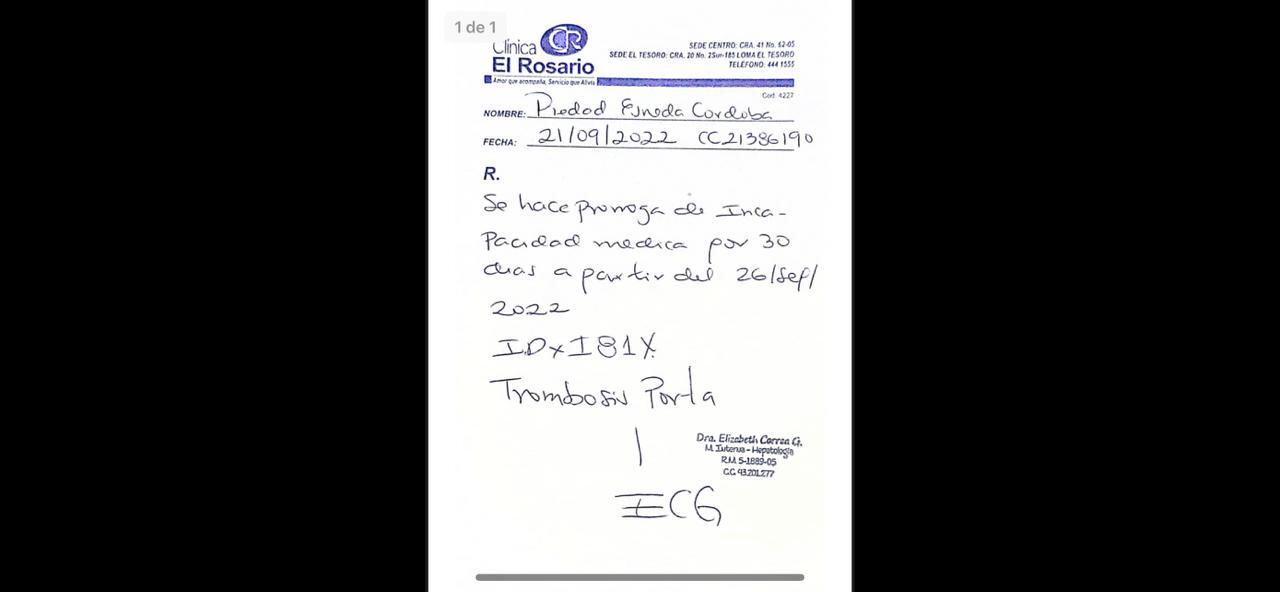 1 de 1
Clínica CR
El Rosario
Amor que acompaña, Servicio que Alivia
SEDE CENTRO: CRA. 41 No. 62-05
SEDE EL TESORO: CRA. 20 No. 2Sur-185 LOMA EL TESORO
TELÉFONO: 444 1555
Cod. 4227
NOMBRE: Piedad Esneda Cordoba
FECHA: 21/09/2022 CC21386190
R.
Se hace prorroga de Inca-
pacidad medica por 30
dias a partir del 26/Sep/
2022
IDx I81X
Trombosis Porta
Dra. Elizabeth Correa G.
M. Interna - Hepatología
R.M. 5-1889-05
C.C. 43.201.277
ECG